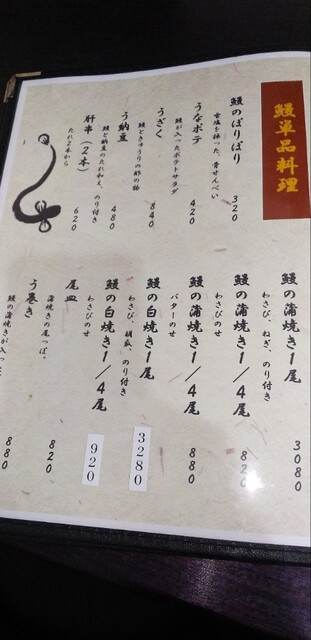 鰻単品料理
鰻のぱりぱり
骨塩を振った、骨せんべい
320
うなポテ
鰻が入ったポテトサラダ
420
うざく
鰻ときゅうりの酢の物
840
う納豆
鰻と納豆のたれ和え、のり付き
480
肝串（2本）
たれ2本から
620
鰻の蒲焼き1尾
わさび、ねぎ、のり付き
3080
鰻の蒲焼き1／4尾
わさびのせ
820
鰻の蒲焼き1／4尾
バターのせ
880
鰻の白焼き1尾
わさび、胡瓜、のり付き
3280
鰻の白焼き1／4尾
わさびのせ
920
尾皿
蒲焼きの尾っぽ。
820
う巻き
鰻の蒲焼きが入った
880